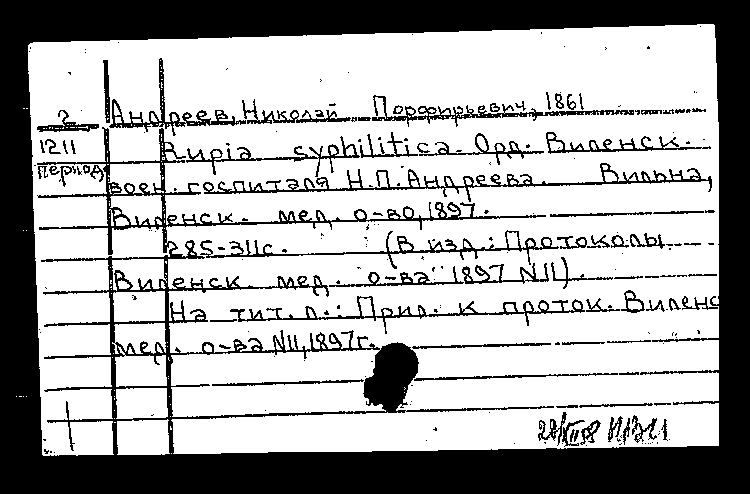 2
1211
период
Андреев, Николай Порфирьевич, 1861
Rupia syphilitica. Орд. Виленск.
воен. госпиталя Н.П.Андреева. Вильна,
Виленск. мед. о-во, 1897.
285-311с. (В изд.: Протоколы
Виленск. мед. о-ва 1897 N11).
На тит. л.: Прил. к проток. Виленс
мед. о-ва N11, 1897г.